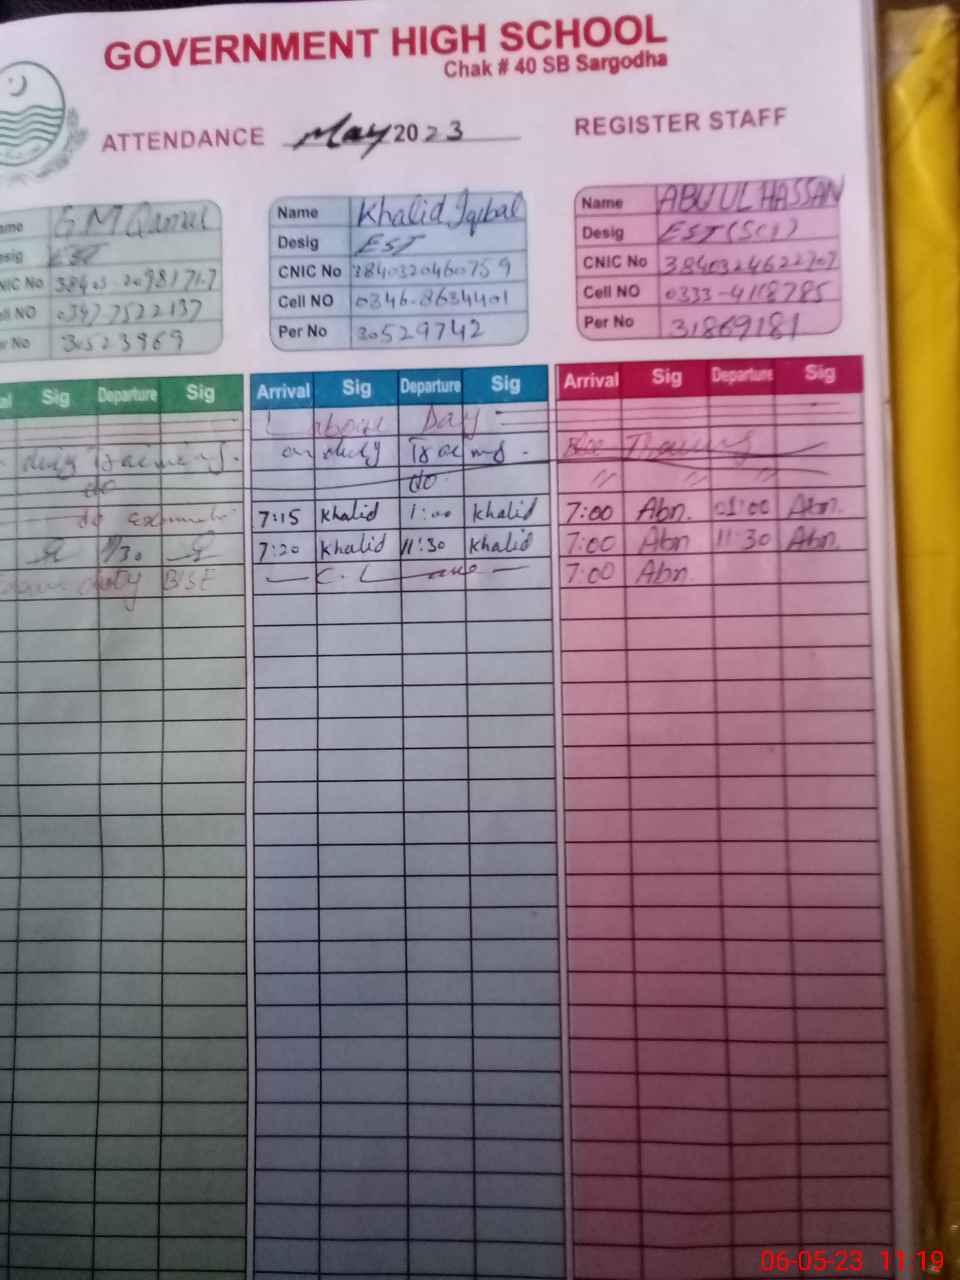 GOVERNMENT HIGH SCHOOL
Chak # 40 SB Sargodha
ATTENDANCE May 2023 REGISTER STAFF
ame G M Qamul
esig EST
NIC No
ell NO 0347 7522137
er No 30523969
Name Khalid Iqbal
Desig EST
CNIC No 3840320460759
Cell NO 0346-8634401
Per No 30529742
Name ABUUL HASSAN
Desig EST (Sci)
CNIC No
Cell NO 0333-4118785
Per No 31869181
al Sig Departure Sig
duty Training.
do
do
11/30
duty BISE
Arrival Sig Departure Sig
Labour Day
on duty Training.
do
7:15 Khalid 1:00 Khalid
7:20 Khalid 11:30 Khalid
C. L
Arrival Sig Departure Sig
Training
" " "
7:00 Abn. 01:00 Abn.
7:00 Abn 11:30 Abn.
7:00 Abn
06-05-23 11 19